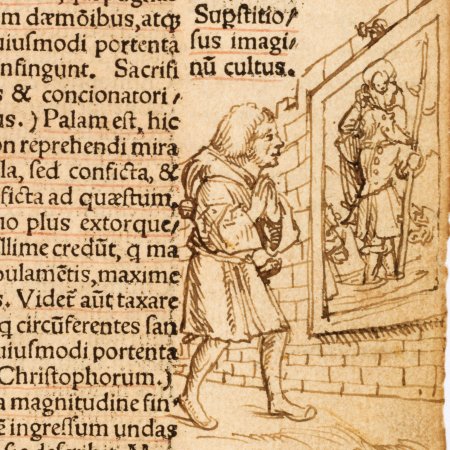 m dæmõibus, atq;
uiusmodi portenta
onfingunt. Sacrifi
s & concionatori/
us.) Palam est, hic
on reprehendi mira
la, sed conficta, &
ficta ad quæstum,
uo plus extorque/
llime credũt, q ma
bulamẽtis, maxime
s. Videt aũt taxare
q circũferentes san
uiusmodi portenta
Christophorum.)
a magnitudine fin
ẽ ingressum undas
Supstitio/
sus imagi/
nũ cultus.